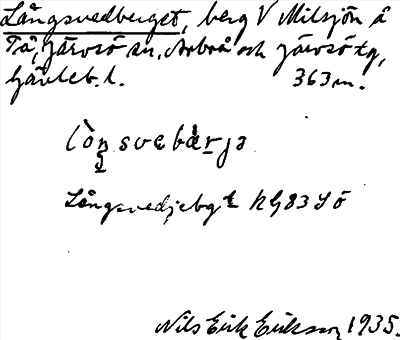 Långsvedberget, berg V Milsjön å
Tå, Järvsö sn, Arbrå och Järvsö tg,
Gävleb. l. 363 m.
Långsvedjebgt kg 83 S ö
Nils Erik Eriksson 1935.